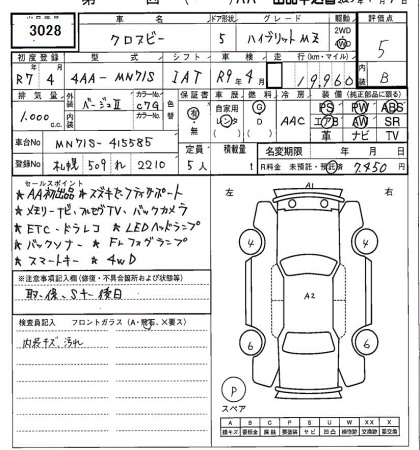 3028
車名
ドア形状
グレード
駆動
評価点
クロスビー
5
ハイブリッドMZ
2WD
4WD
5
初度登録
型式
シフト
車検
走行(km・マイル)
内装
R7 4
4AA-MN71S
IAT
R9年4月
19,960
B
排気量
外装
内装
カラーNo.
色替
保証書
車歴
燃料
冷房
装備(純正部品に限る)
1.000 c.c.
ベージュⅡ
C7G
カラーNo.
有・無
自家用
レンタ
G
D
AAC
PS PW ABS
エアB AW SR
革 ナビ TV
車台No
MN71S-415585
定員
積載量
名変期限 年 月 日
登録No
札幌 509 れ 2210
5人
t
R料金 未預託・預託済 7,450円
セールスポイント
★AA初出品 ★スズキセーフティサポート
★メモリーナビ、フルセグTV、バックカメラ
★ETC・ドラレコ ★LEDヘッドランプ
★バックソナー ★Frフォグランプ
★スマートキー ★4WD
※注意事項記入欄(修復・不具合箇所および状態等)
取、保、Sキー後日
検査員記入 フロントガラス(A・飛石、X要ス)
内装キズ汚れ
左
右
A1
4
4
A2
6
6
P
スペア
A B C P S U W X XX